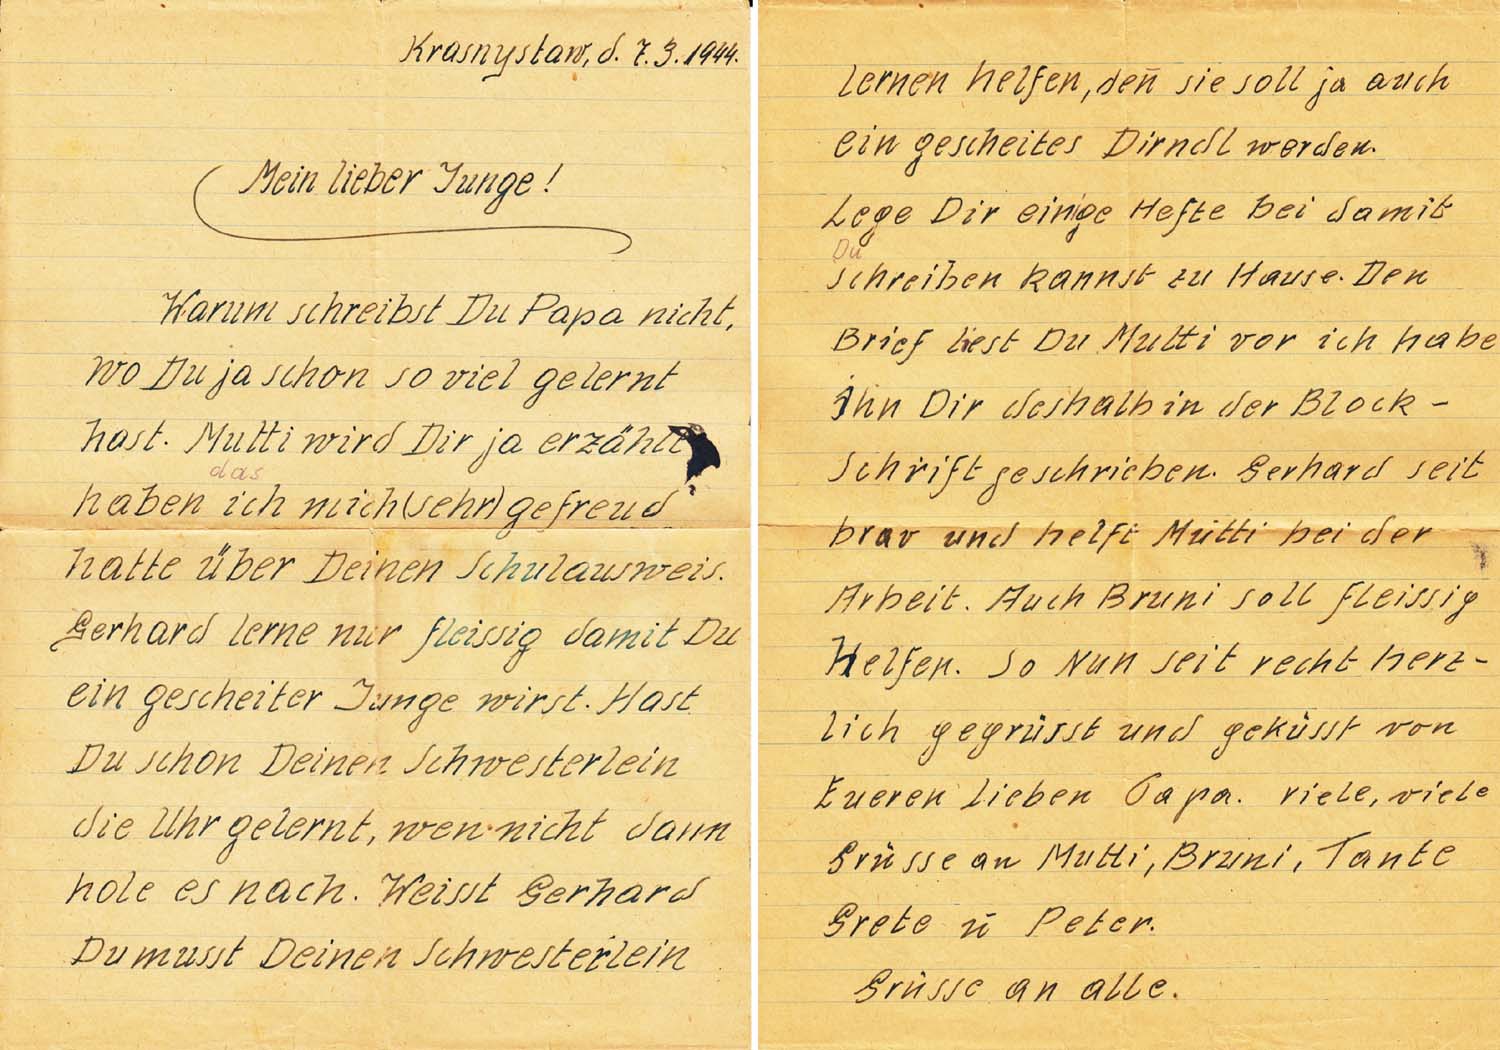 Krasnystaw, d. 7.3.1944.
Mein lieber Junge!
Warum schreibst Du Papa nicht,
wo Du ja schon so viel gelernt
hast. Mutti wird Dir ja erzählt
das
haben ich mich (sehr) gefreud
hatte über Deinen Schulausweis.
Gerhard lerne nur fleissig damit Du
ein gescheiter Junge wirst. Hast
Du schon Deinen Schwesterlein
die Uhr gelernt, wen nicht dann
hole es nach. Weisst Gerhard
Du musst Deinen Schwesterlein
lernen helfen, den̄ sie soll ja auch
ein gescheites Dirndl werden.
Lege Dir einige Hefte bei damit
Du
schreiben kannst zu Hause. Den
Brief liest Du Mutti vor ich habe
ihn Dir deshalb in der Block-
schrift geschrieben. Gerhard seit
brav und helft Mutti bei der
Arbeit. Auch Bruni soll fleissig
Helfen. So Nun seit recht herz-
lich gegrüsst und geküsst von
Eueren lieben Papa. viele, viele
Grüsse an Mutti, Bruni, Tante
Grete ū Peter.
Grüsse an alle.